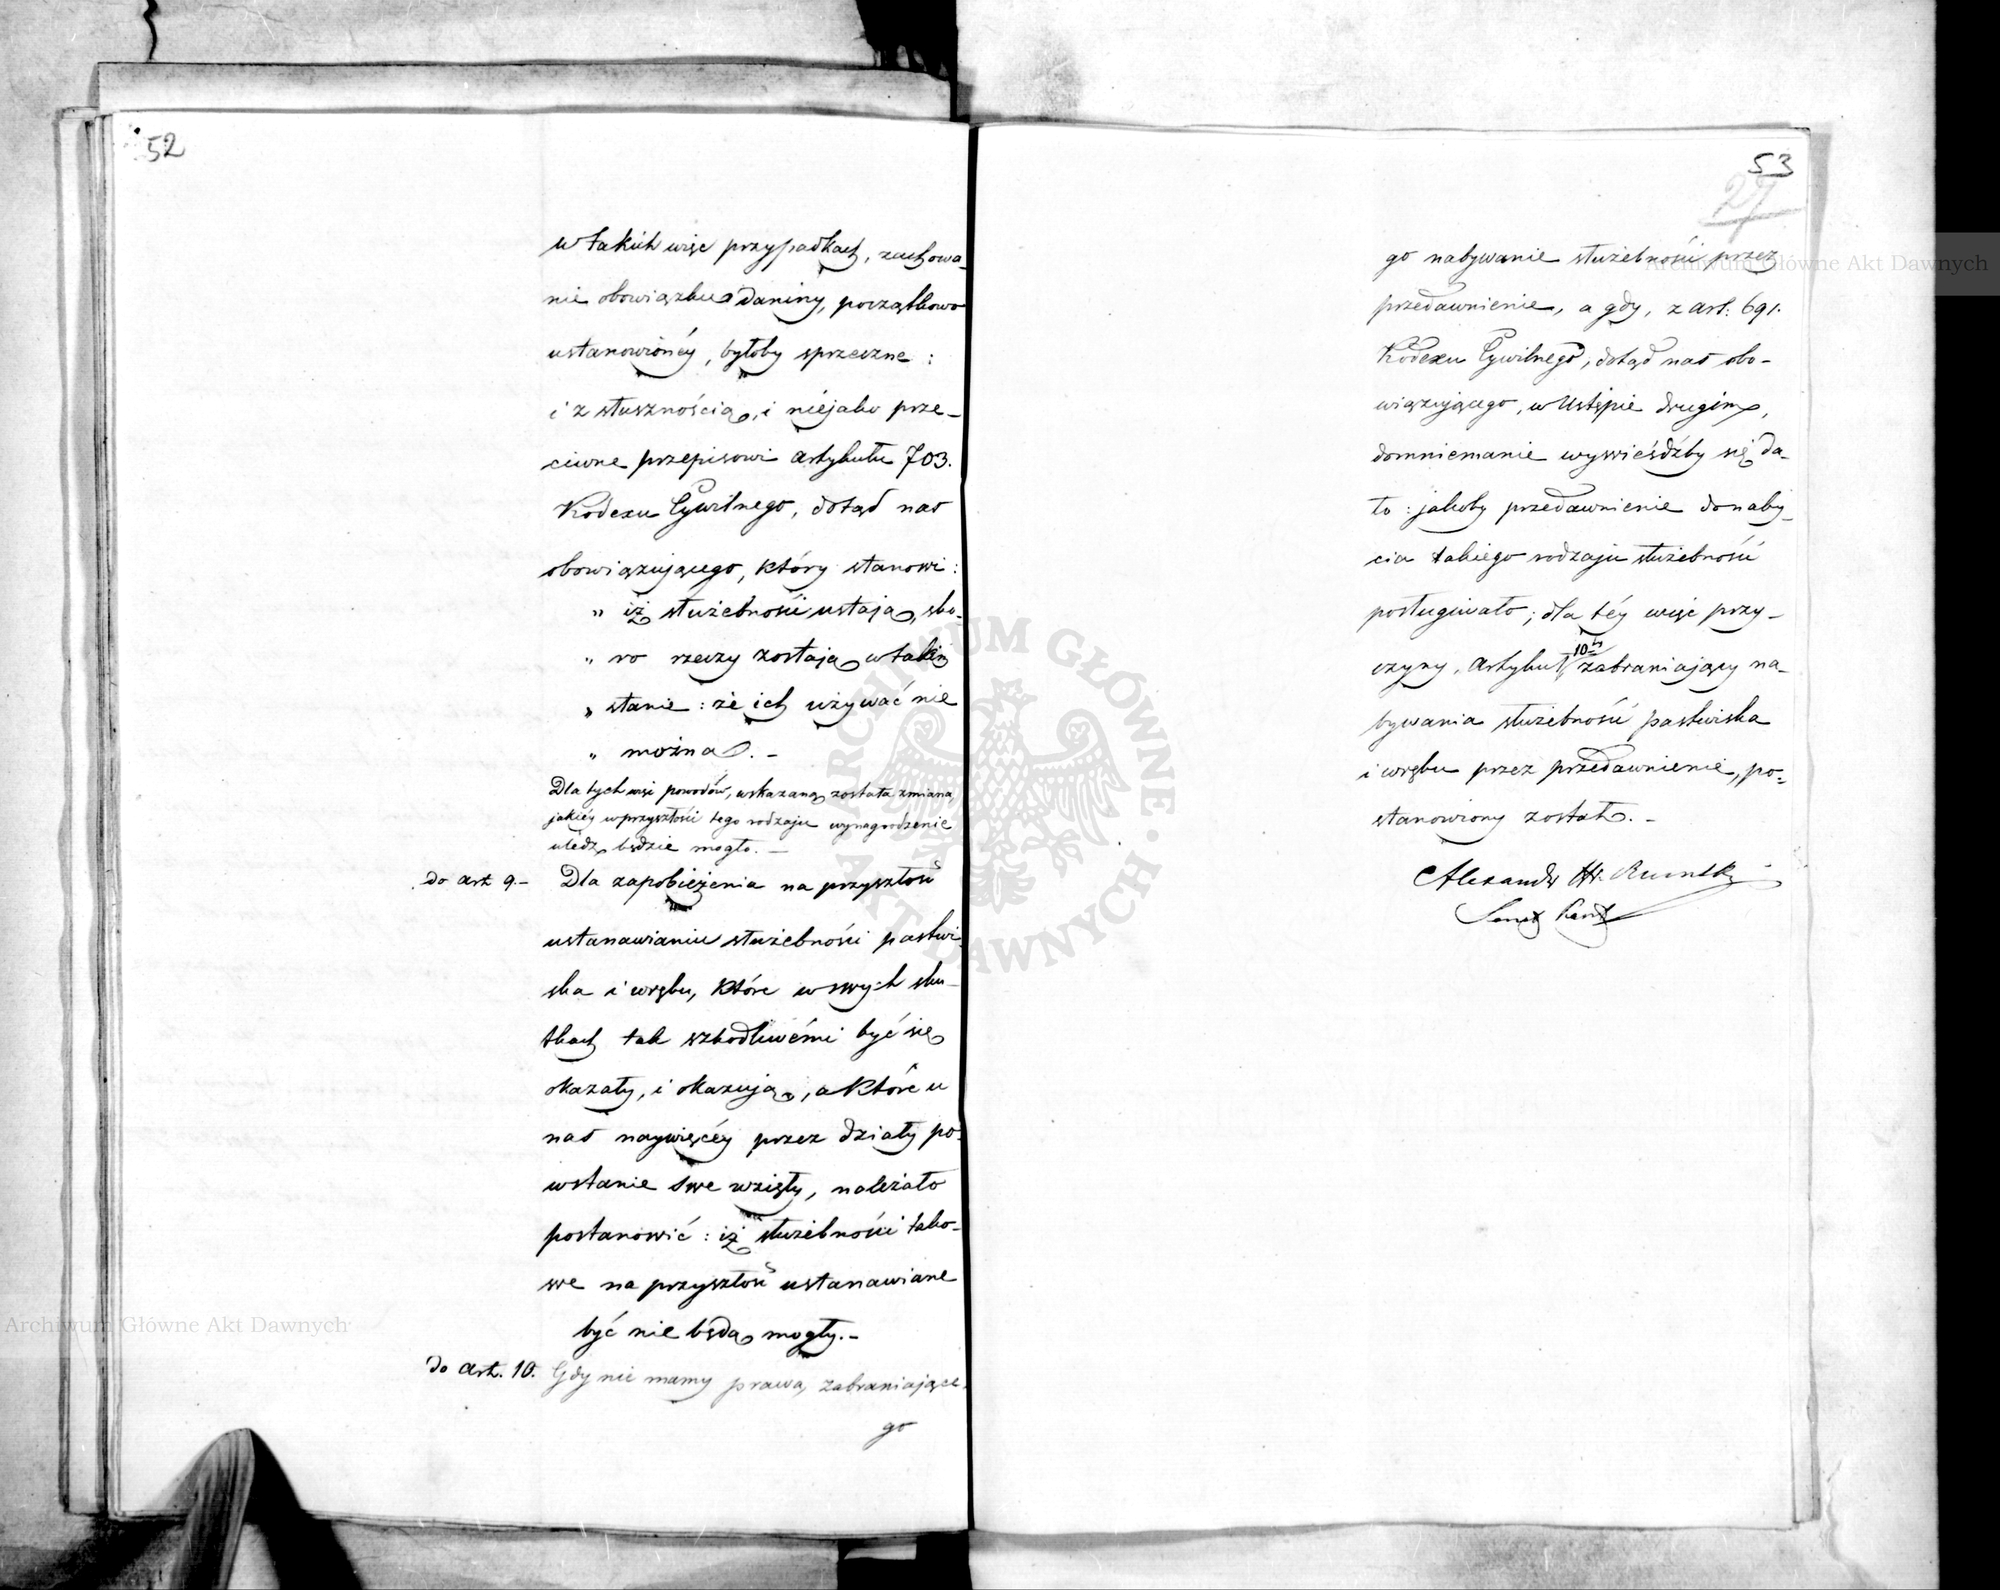 52
w takich więc przypadkach, zachowa-
nie obowiązku daniny, początkowo
ustanowionéy, byłoby sprzeczne :
i z słusznością, i niejako prze-
ciwne przepisowi Artykułu 703.
Kodexu Cywilnego, dotąd nas
obowiązującego, który stanowi :
" iż służebności ustają, sko-
" ro rzeczy zostają w takim
" stanie : że ich używać nie
" można. -
Dla tych więc powodów, wskazaną została zmiana,
jakiéy w przyszłości tego rodzaju wynagrodzenie
uledz będzie mogło. -
do art 9.- Dla zapobieżenia na przyszłość
ustanawianiu służebności pastwi-
ska i wrębu, które w swych sku-
tkach tak szkodliwémi być się
okazały, i okazują, a które u
nas naywięcéy przez działy po-
wstanie swe wzięły, należało
postanowić : iż służebności tako-
we na przyszłość ustanawiane
być nie będą mogły. -
do art. 10. Gdy nie mamy prawa, zabraniające-
go
53
27
go nabywanie służebności przez
przedawnienie, a gdy, z art: 691.
Kodexu Cywilnego, dotąd nas obo-
wiązującego, w Ustępie drugim,
domniemanie wywieśdźby się da-
ło : jakoby przedawnienie do naby-
cia takiego rodzaju służebność
posługiwało ; dla téy więc przy-
czyny, Artykuł 10ty zabraniający na-
bywania służebność pastwiska
i wrębu przez przedawnienie, po-
stanowiony został. -
Alexander Hr.
Archiwum Główne Akt Dawnych
Archiwum Główne Akt Dawnych
ARCHIWUM GŁÓWNE AKT DAWNYCH